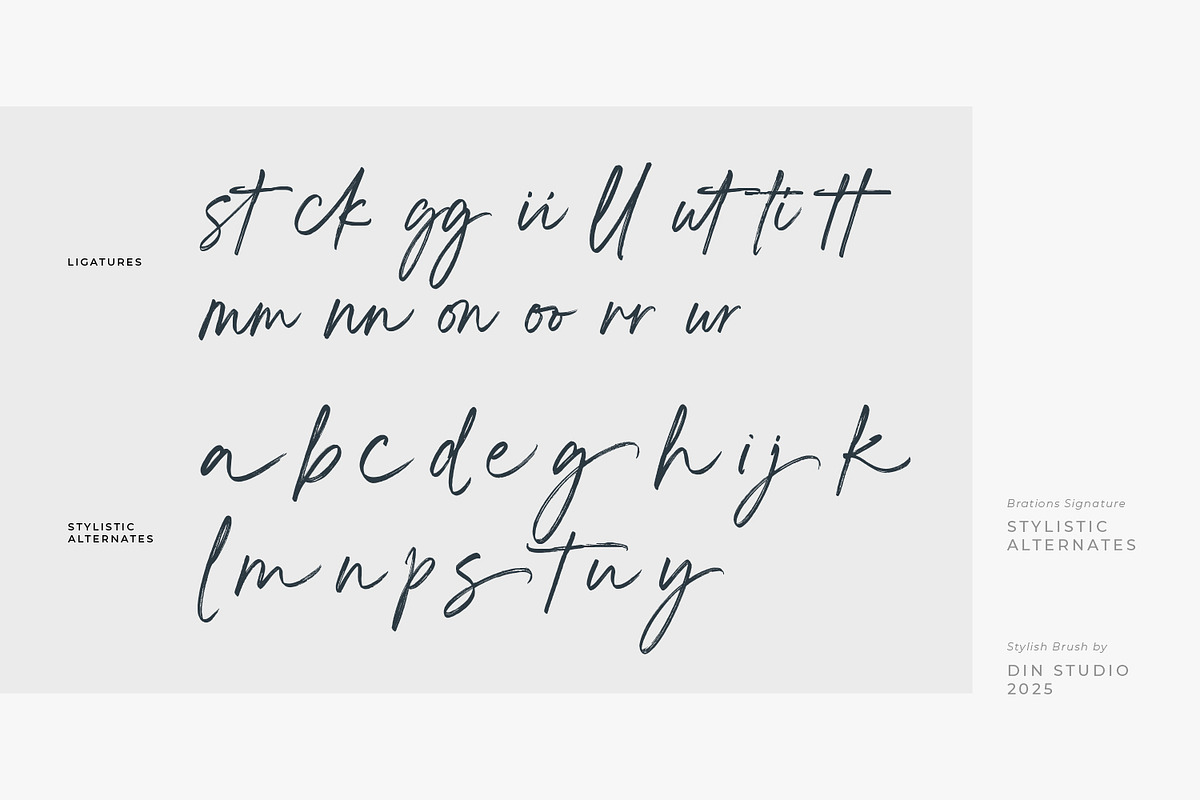 LIGATURES
st ck gg ii ll ut ti tt
mm nn on oo rr ur
STYLISTIC
ALTERNATES
a b c d e g h i j k
l m n p s t u y
Brations Signature
STYLISTIC
ALTERNATES
Stylish Brush by
DIN STUDIO
2025